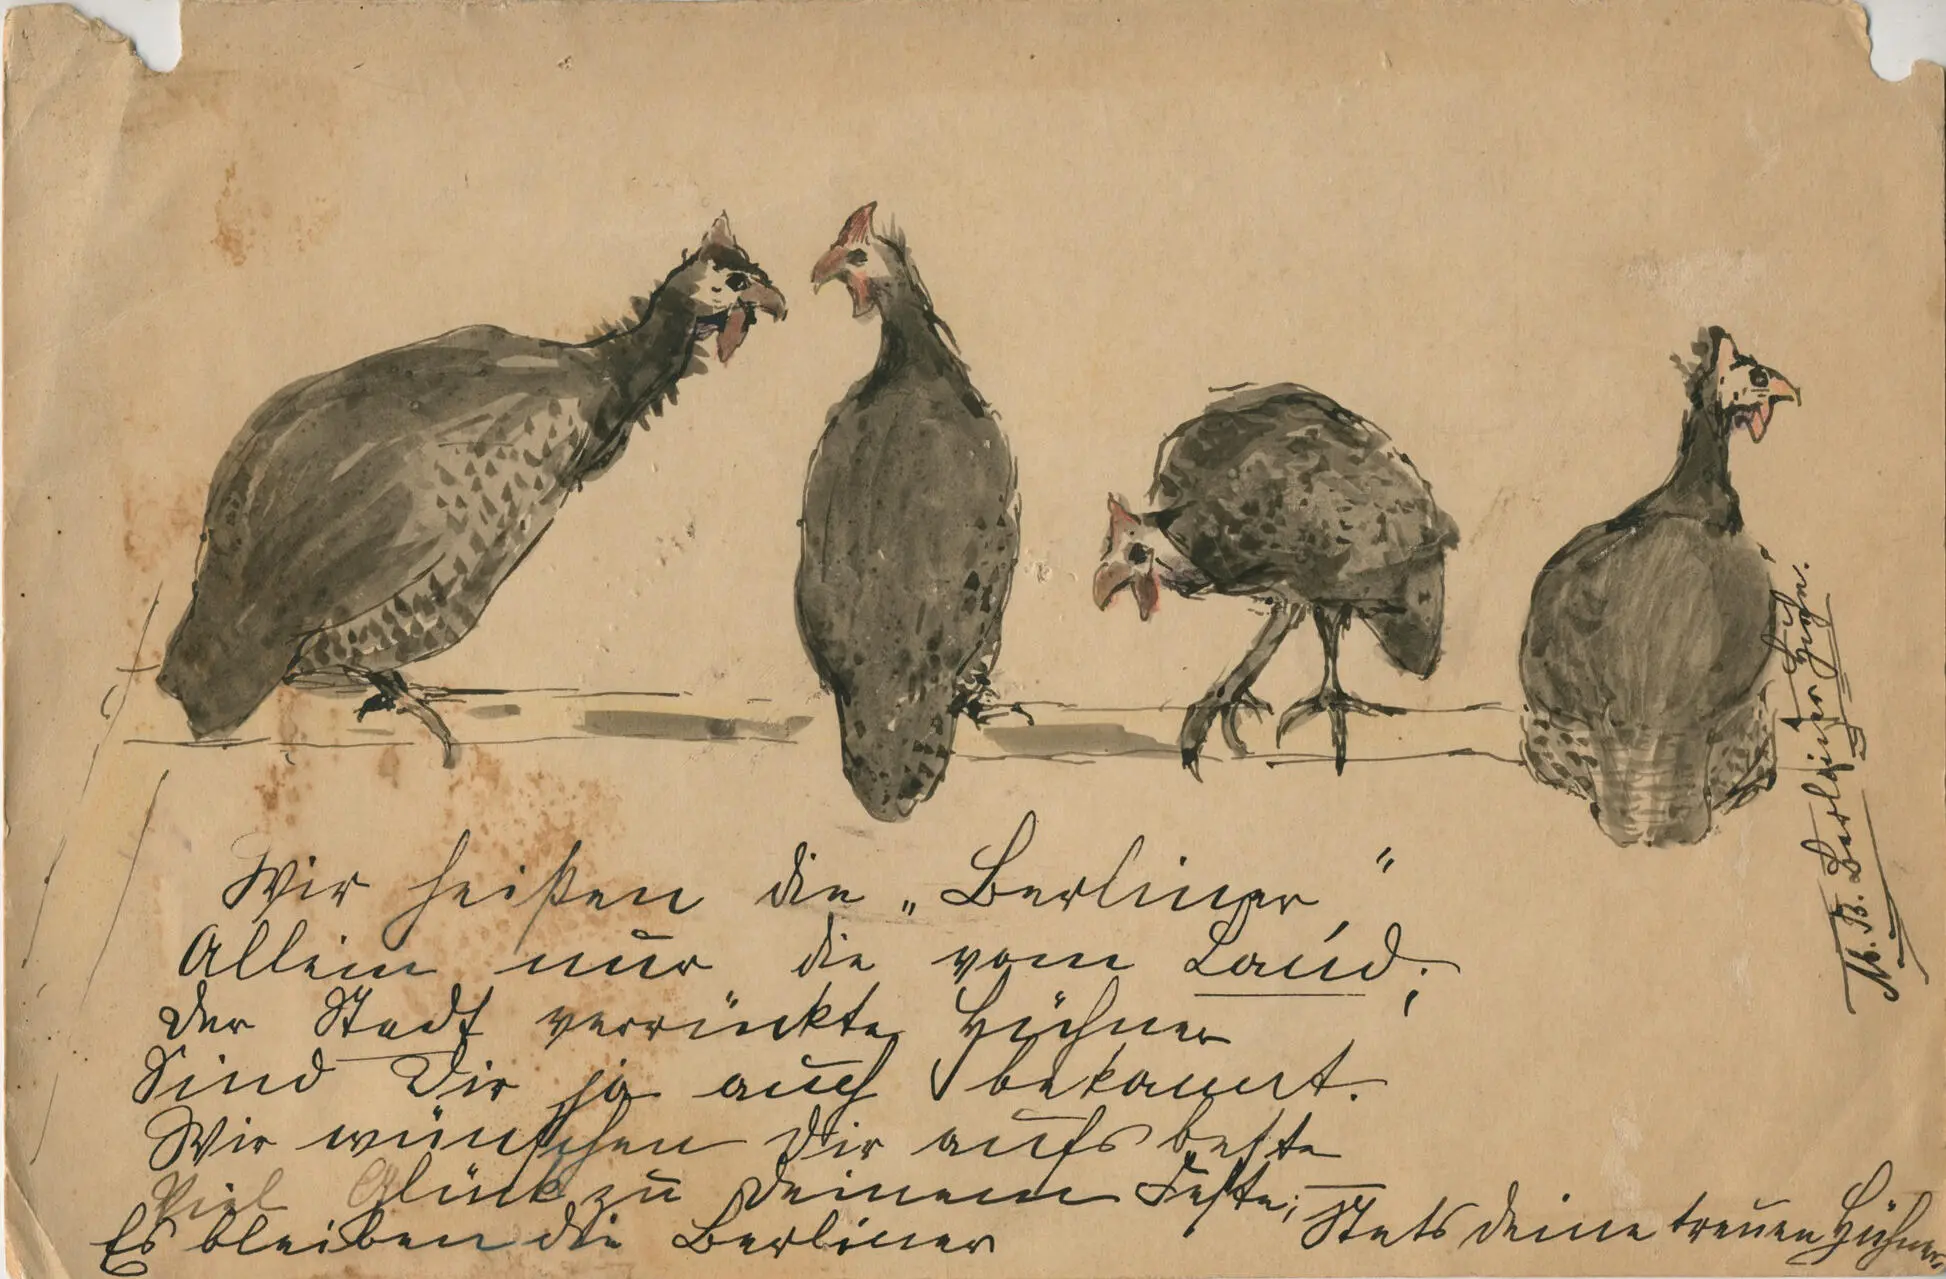 Wir heißen die „Berliner“
Allein nur die vom Land;
Der Stadt verrückte Hühner
Sind Dir ja auch bekannt.
Wir wünschen Dir aufs beste
Viel Glück zu Deinem Feste; —
Es bleiben die Berliner
Stets deine treuen Hühner.
Berliner